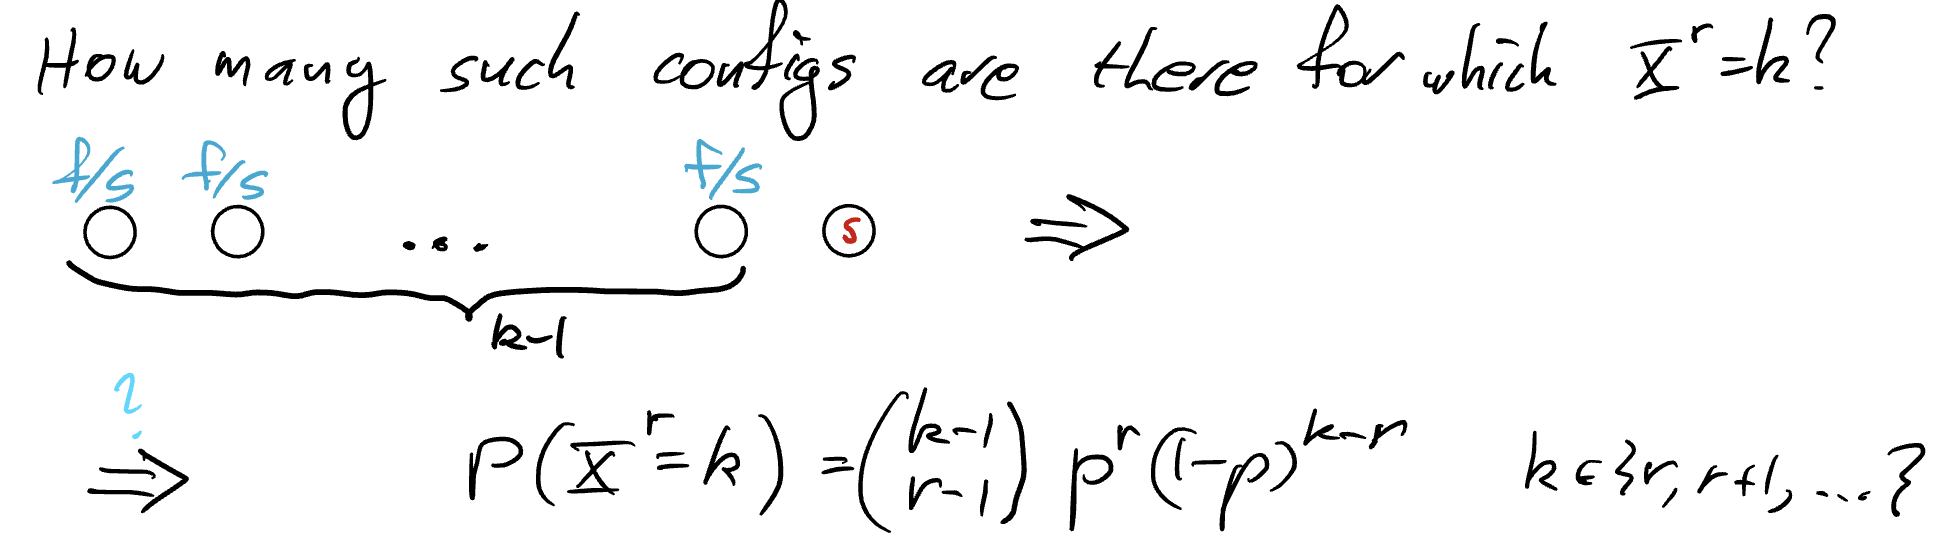 How many such configs are there for which X^r = k?
f/s f/s f/s
... s ⇒
k-1
?
⇒ P(X^r = k) = \binom{k-1}{r-1} p^r (1-p)^{k-r} k ∈ {r, r+1, ...}